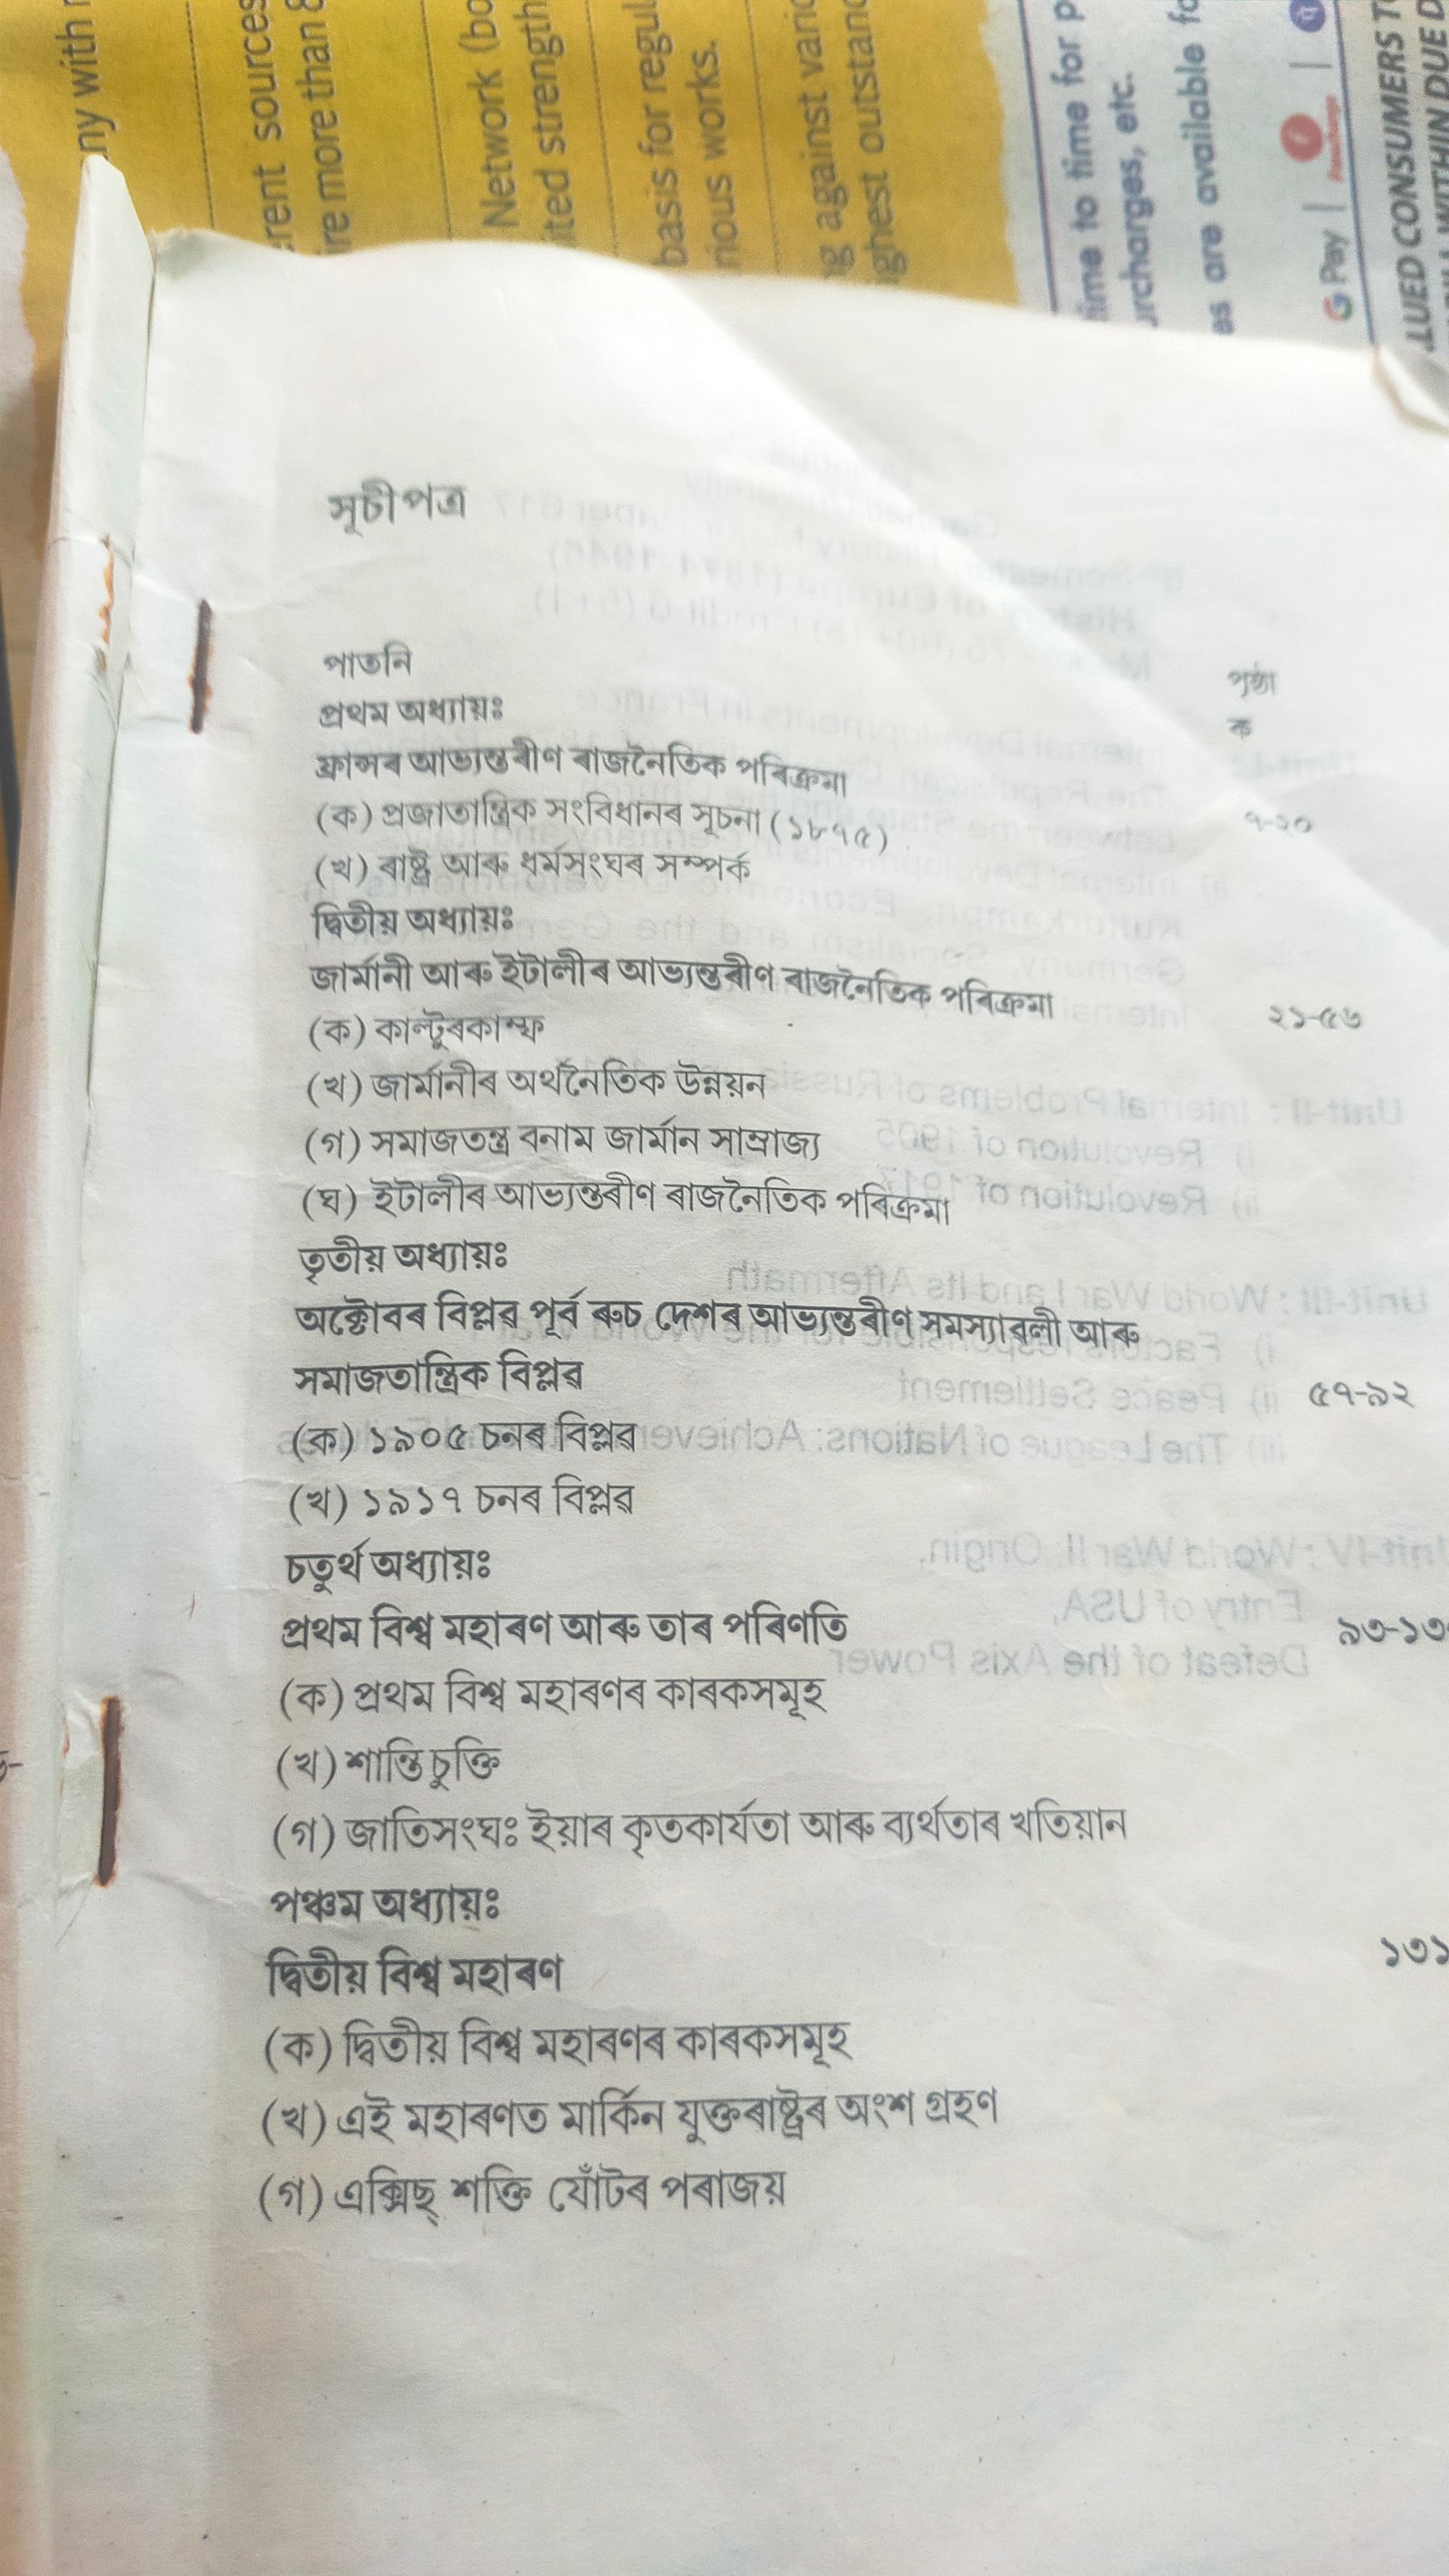 ny with
rent sources
re more than 8
Network (bo
ited strength
basis for regul
rious works.
g against vario
ghest outstand
time to time for p
urcharges, etc.
es are available fo
G Pay |
LUED CONSUMERS T
WITHIN DUE D
সূচীপত্ৰ
পাতনি পৃষ্ঠা
প্ৰথম অধ্যায়ঃ ক
ফ্ৰান্সৰ আভ্যন্তৰীণ ৰাজনৈতিক পৰিক্ৰমা
(ক) প্ৰজাতান্ত্ৰিক সংবিধানৰ সূচনা (১৮৭৫) ৭-২০
(খ) ৰাষ্ট্ৰ আৰু ধৰ্মসংঘৰ সম্পৰ্ক
দ্বিতীয় অধ্যায়ঃ
জাৰ্মানী আৰু ইটালীৰ আভ্যন্তৰীণ ৰাজনৈতিক পৰিক্ৰমা ২১-৫৬
(ক) কাল্টুৰকাম্ফ
(খ) জাৰ্মানীৰ অৰ্থনৈতিক উন্নয়ন
(গ) সমাজতন্ত্ৰ বনাম জাৰ্মান সাম্ৰাজ্য
(ঘ) ইটালীৰ আভ্যন্তৰীণ ৰাজনৈতিক পৰিক্ৰমা
তৃতীয় অধ্যায়ঃ
অক্টোবৰ বিপ্লৱ পূৰ্ব ৰুচ দেশৰ আভ্যন্তৰীণ সমস্যাৱলী আৰু
সমাজতান্ত্ৰিক বিপ্লৱ ৫৭-৯২
(ক) ১৯০৫ চনৰ বিপ্লৱ
(খ) ১৯১৭ চনৰ বিপ্লৱ
চতুৰ্থ অধ্যায়ঃ
প্ৰথম বিশ্ব মহাৰণ আৰু তাৰ পৰিণতি ৯৩-১৩
(ক) প্ৰথম বিশ্ব মহাৰণৰ কাৰকসমূহ
(খ) শান্তি চুক্তি
(গ) জাতিসংঘঃ ইয়াৰ কৃতকাৰ্যতা আৰু ব্যৰ্থতাৰ খতিয়ান
পঞ্চম অধ্যায়ঃ
দ্বিতীয় বিশ্ব মহাৰণ ১৩১
(ক) দ্বিতীয় বিশ্ব মহাৰণৰ কাৰকসমূহ
(খ) এই মহাৰণত মাৰ্কিন যুক্তৰাষ্ট্ৰৰ অংশ গ্ৰহণ
(গ) এক্সিছ্ শক্তি যোঁটৰ পৰাজয়